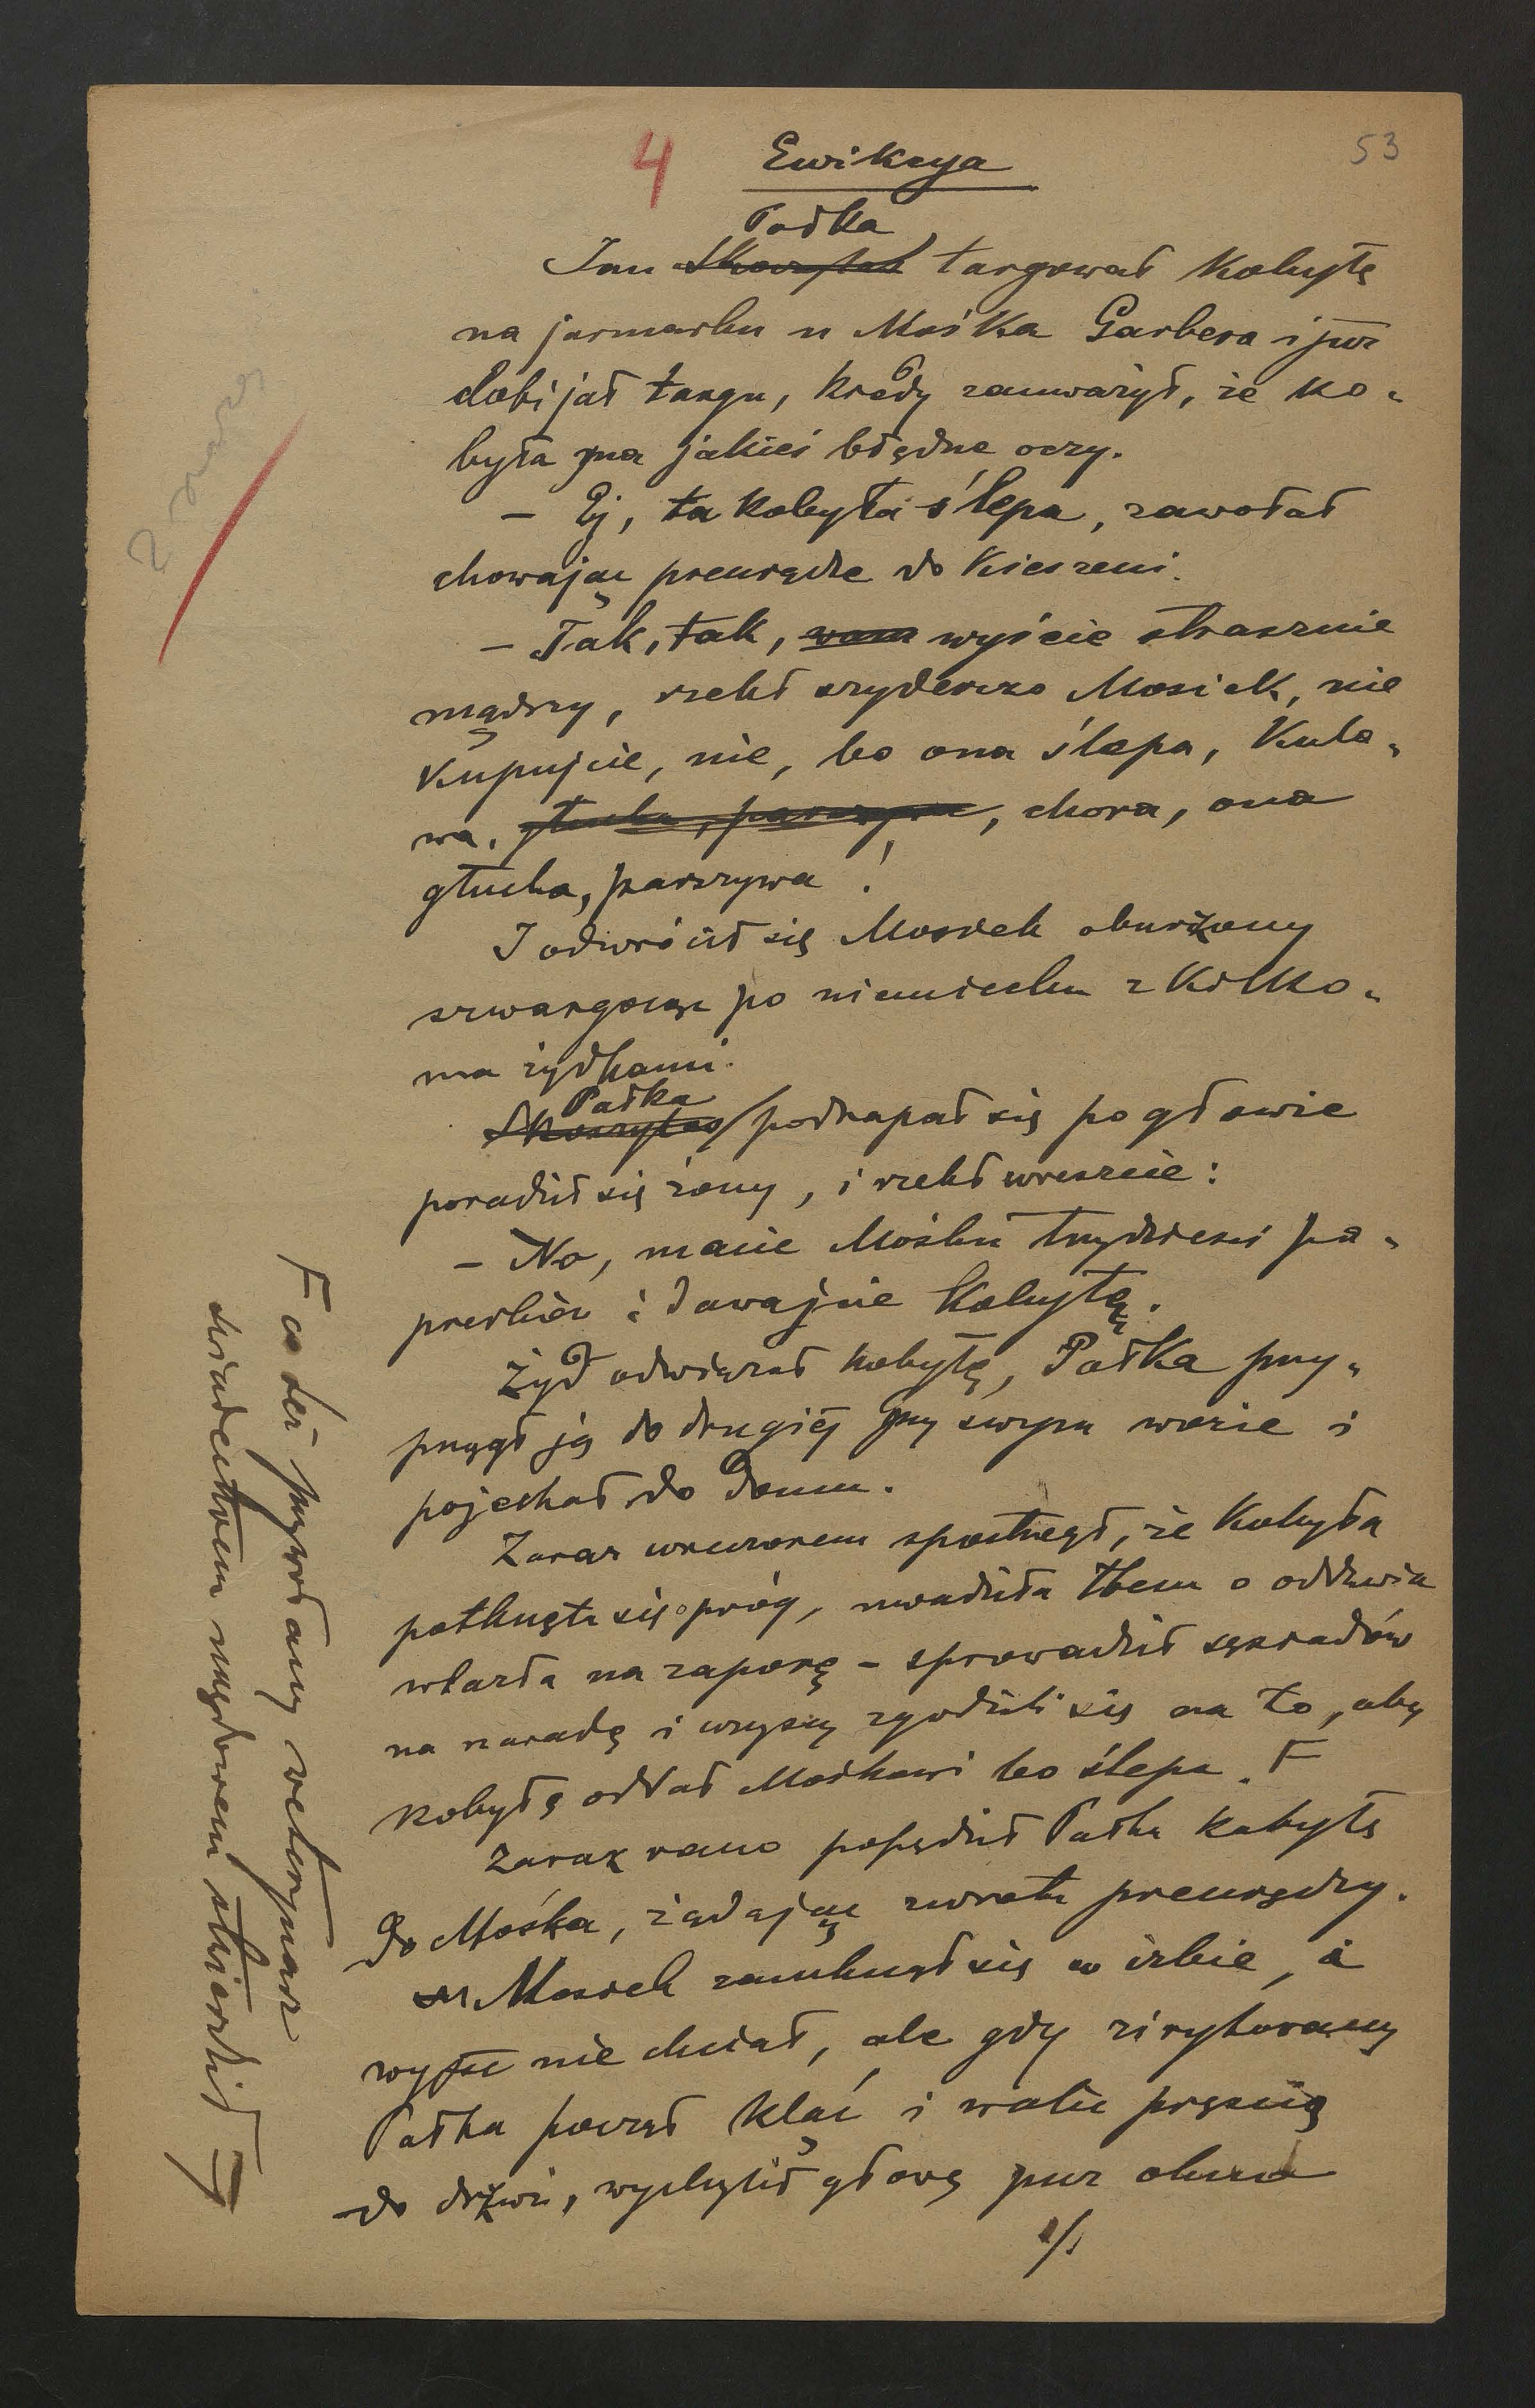 4 Ewikcya 53
Pałka
Jan Skoczylas targował kobyłę
na jarmarku u Mośka Garbera i już
dobijał targu, kiedy zauważył, że ko-
była ma jakieś błędne oczy.
– Ej, ta kobyła ślepa, zawołał
chowając pieniądze do kieszeni.
– Tak, tak, wam wyście strasznie
mądrzy, rzekł szyderczo Mosiek, nie
kupujcie, nie, bo ona ślepa, kula-
wa, głucha, parszywa, chora, ona
głucha, parszywa!
I odwrócił się Mosiek oburzony
szwargocąc po niemiecku z kilko-
ma żydkami.
Pałka
Skoczylas podrapał się po głowie
poradził się żony, i rzekł wreszcie:
– No, macie Mośku trzydzieści pa-
pierków i dawajcie kobyłę.
Żyd odwiązał kobyłę, Pałka przy-
przągł ją do drugiej przy swym wozie i
pojechał do domu.
Zaraz wieczorem spostrzegł, że kobyła
potknęła się o próg, uwadziła łbem o odrzwia
wlazła na zaporę – sprowadził sąsiadów
na naradę i wszyscy zgodzili się na to, aby
kobyłę oddał Mośkowi bo ślepa. F
Zaraz rano popędził Pałka kobyłę
do Mośka, żądając zwrotu pieniędzy.
Mosiek zamknął się w izbie, i
wyjść nie chciał, ale gdy zirytowany
Pałka począł kląć i walić pięścią
do drzwi, wychylił głowę przez okno
F co też przywołany weterynarz
świadectwem urzędowem stwierdził